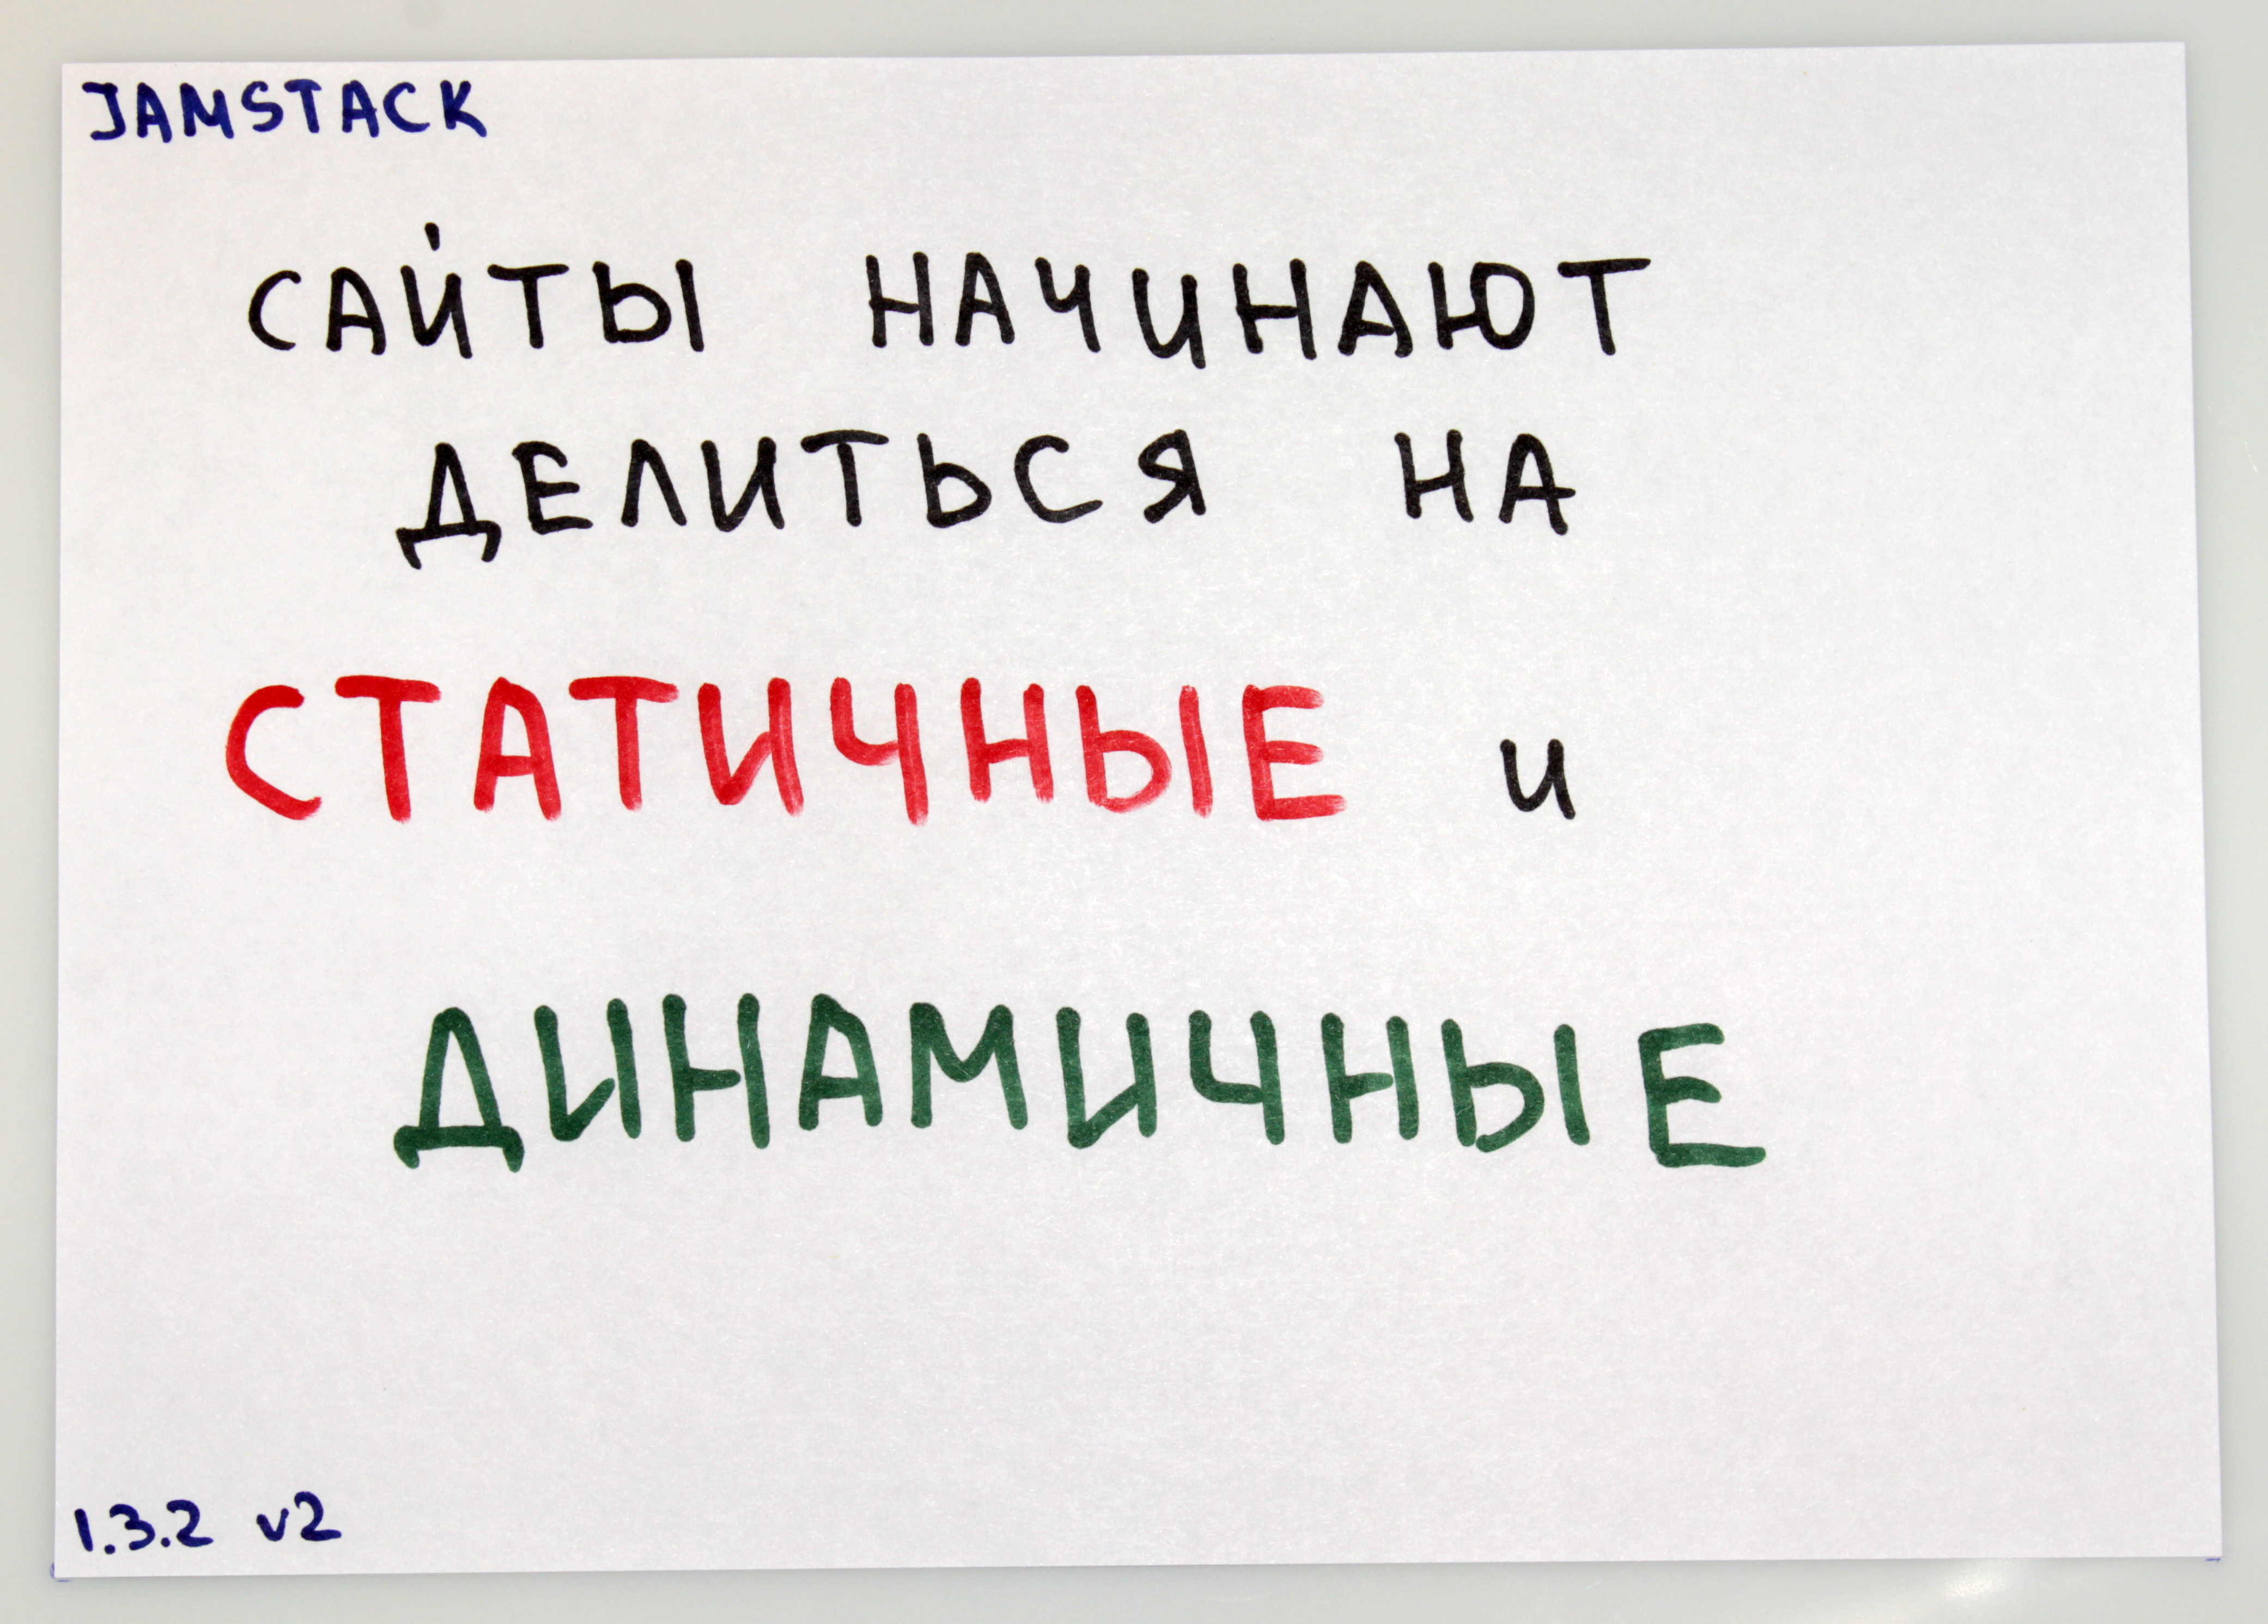 JAMSTACK
САЙТЫ НАЧИНАЮТ
ДЕЛИТЬСЯ НА
СТАТИЧНЫЕ И
ДИНАМИЧНЫЕ
1.3.2 v2